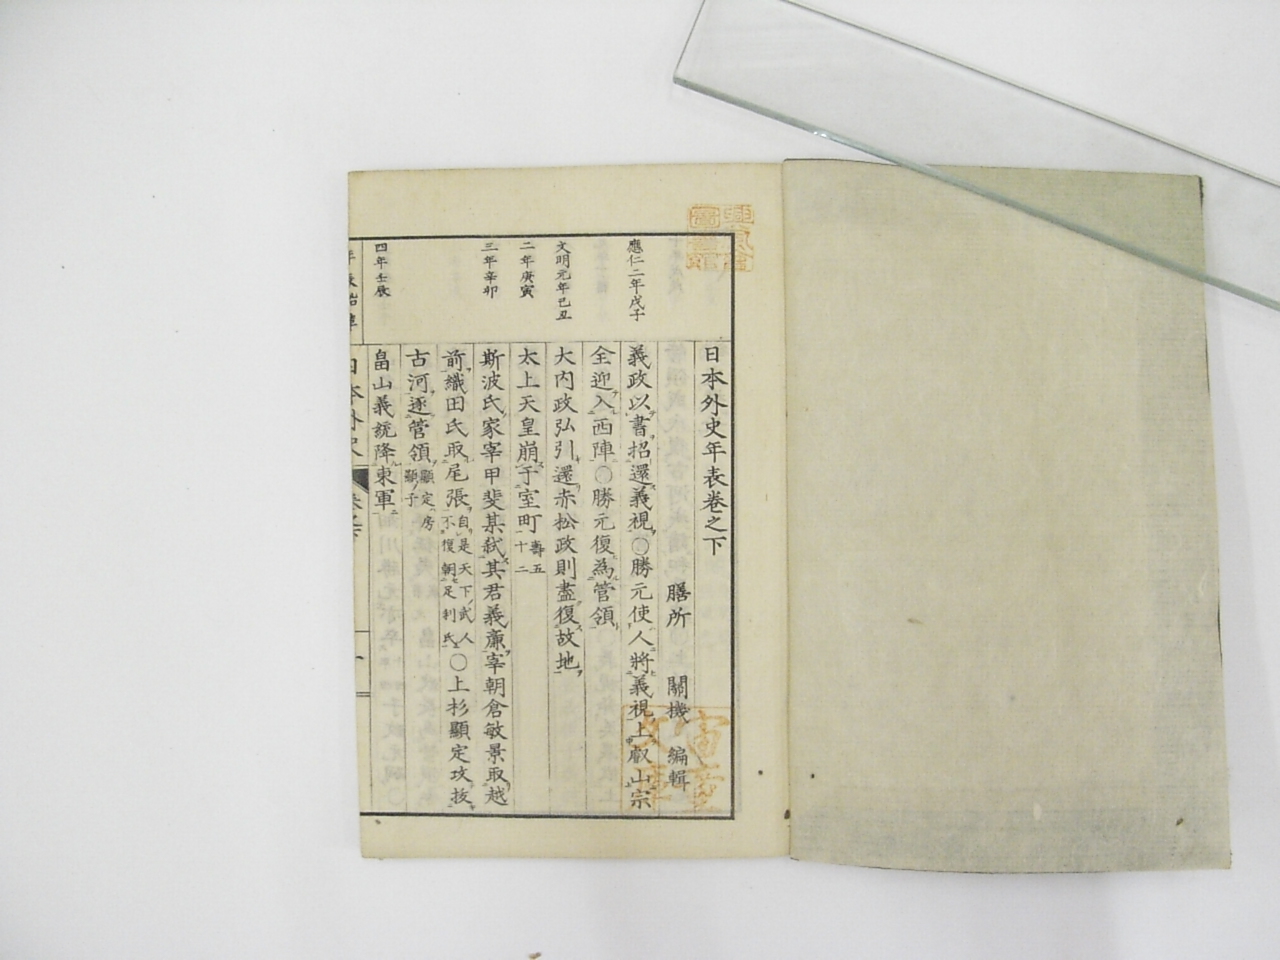 日本外史年表卷之下
膳所 關機 編輯
應仁二年戊子
義政以書招還義視○勝元使人將義視上叡山宗
全迎入西陣○勝元復為管領
文明元年己丑
大内政弘引還赤松政則盡復故地
二年庚寅
太上天皇崩于室町壽五十二
三年辛卯
斯波氏家宰甲斐某弑其君義廉宰朝倉敏景取越
前織田氏取尾張自是天下武人不復朝足利氏○上杉顯定攻拔
古河逐管領顯定房顯子
四年壬辰
畠山義統降東軍
日本外史